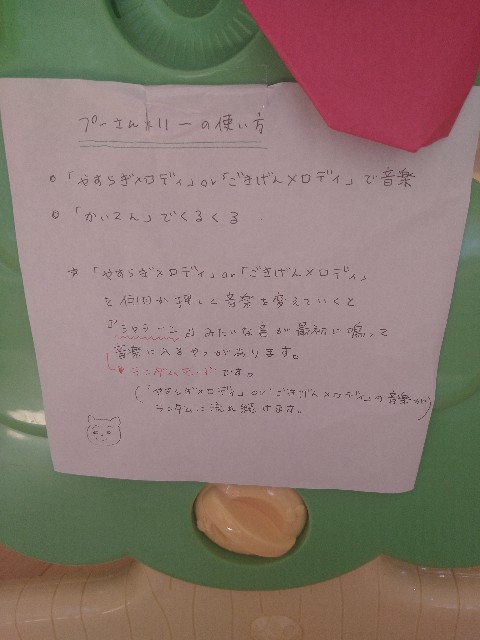 プーさんメリーの使い方
◎「やすらぎメロディ」or「ごきげんメロディ」で音楽
◎「かいてん」でくるくる
☆「やすらぎメロディ」or「ごきげんメロディ」
を何回か押して音楽を変えていくと
『シャラーン』みたいな音が最初に鳴って
音楽に入るやつがあります。
→ランダムモードです。
(「やすらぎメロディ」or「ごきげんメロディ」の音楽が
ランダムに流れ続けます。)